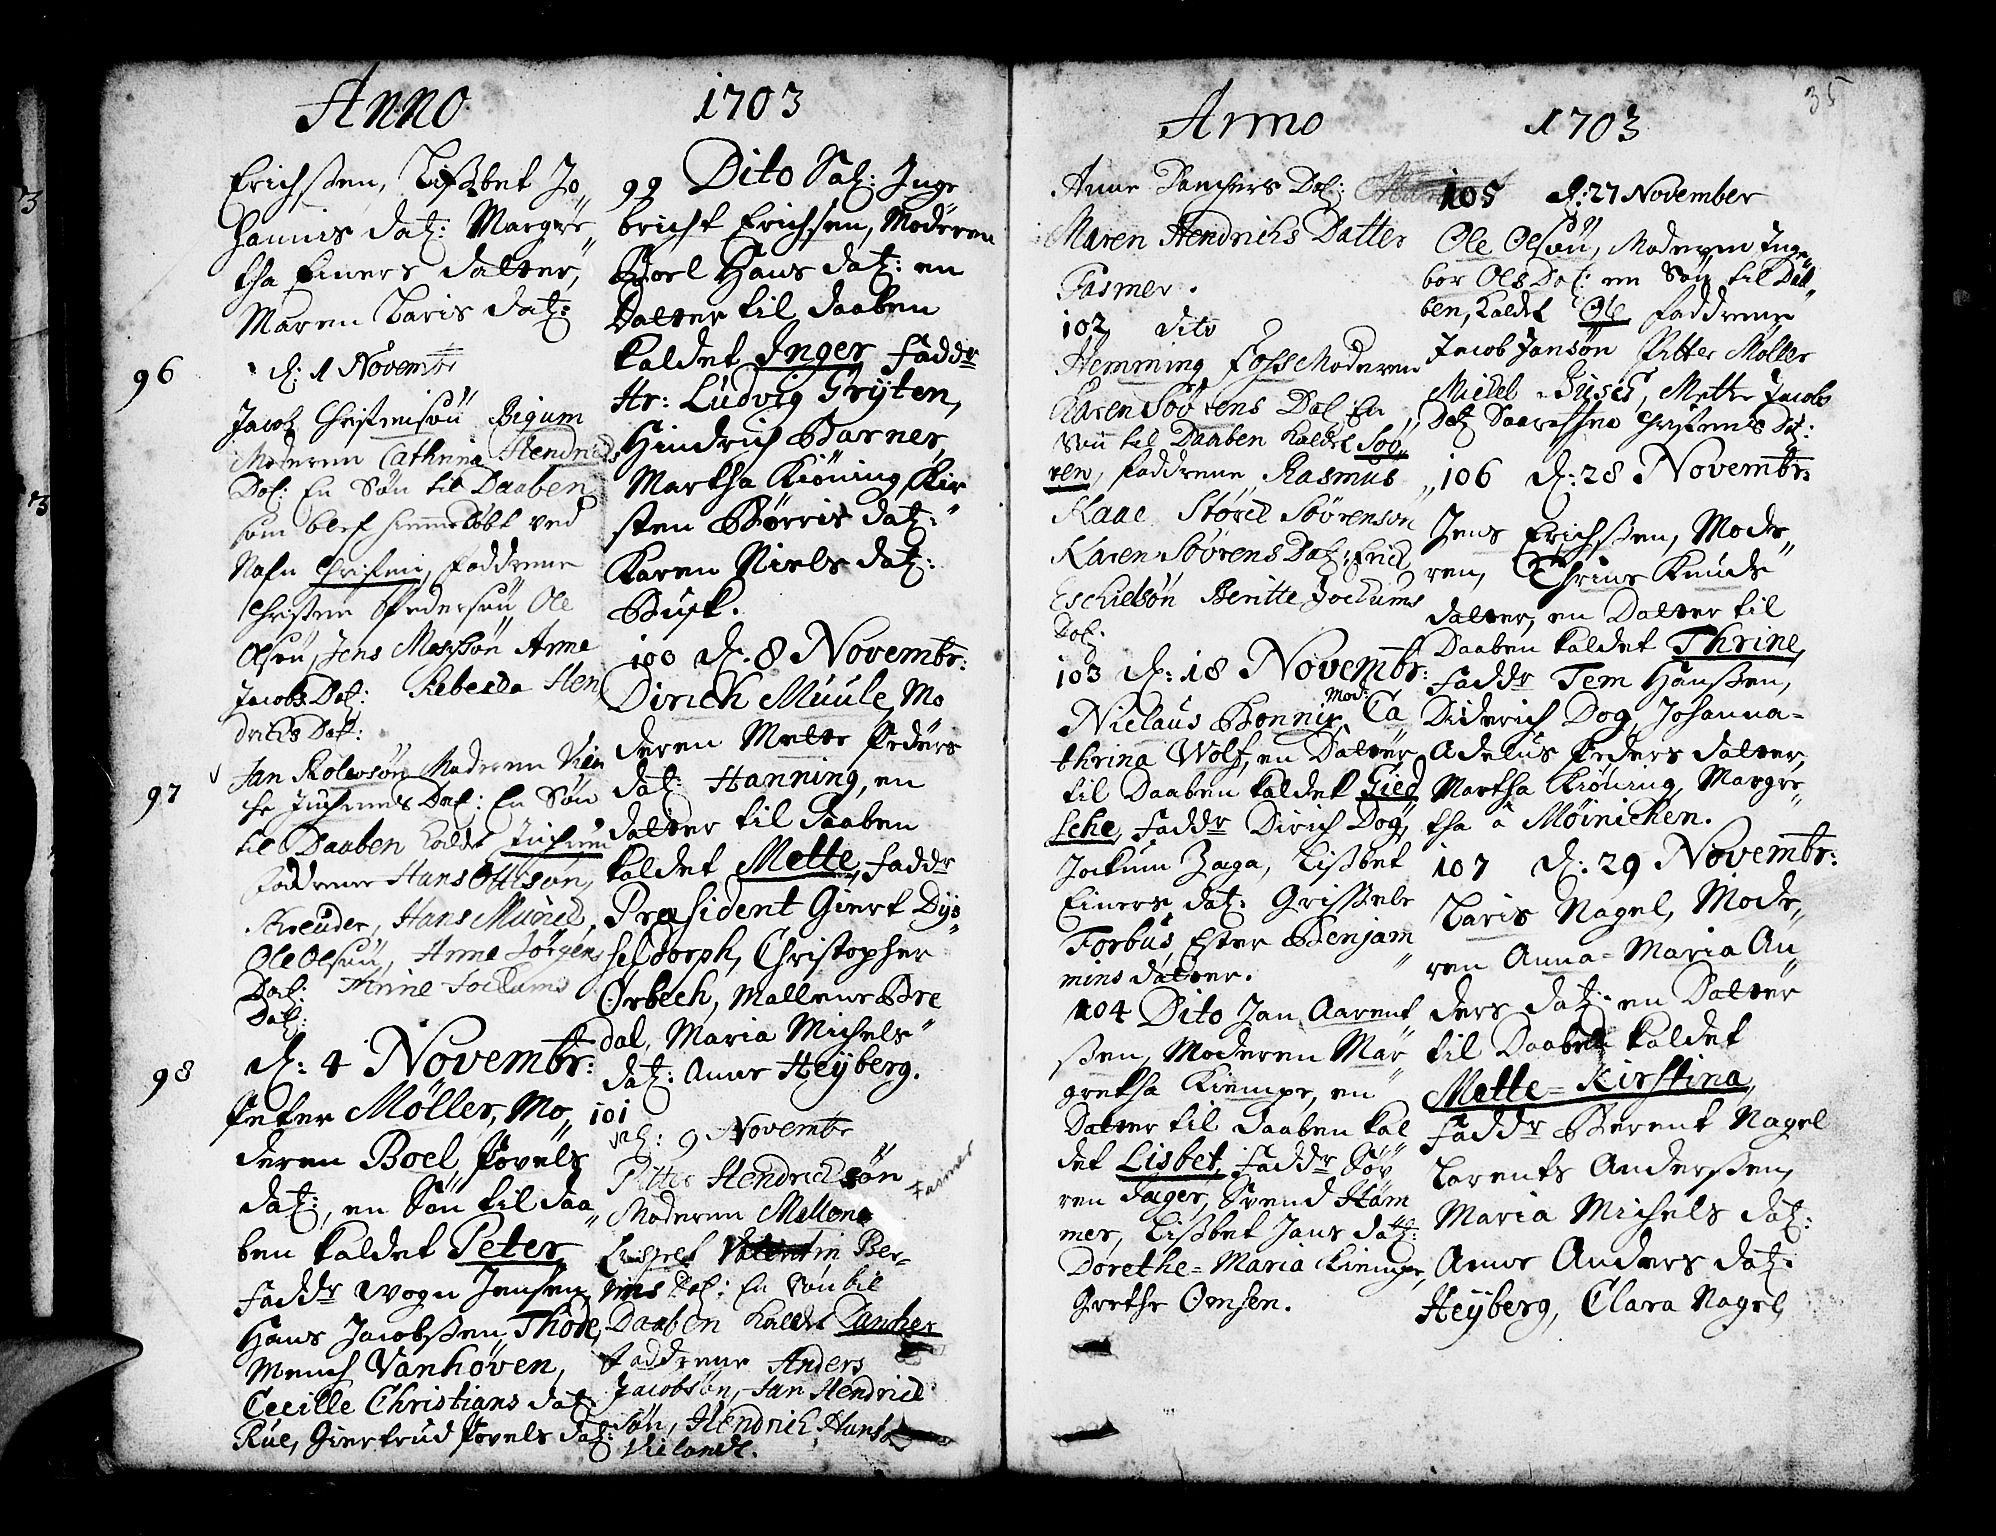 Anno 1703
Erichssen, Lissbet Jo„
hannis datt: Margre„
tha Einers datter,
Maren Laris datt:
96 d. 1 Novembr
Jacob Christensøn Bigum
Moderen Cathrina Hendrichs
Dat: En Søn til Daaben
som blef hiemmedøbt ved
Nafn Christen, Faddrene
Christen Pedersøn, Ole
Olsøn, Jens Madssøn Anne
Jacobs Dat: Rebecka Hen
drichs Datt:
97 Jan Rolevsøn Moderen
Dat: En Søn
til Daaben Kaldt Jochum
Faddrene Hans Ottison,
Skreuder, Hans
Ole Olsøn, Anne Jørgens
Dat: Thrine Jochums
Dat:
98 d: 4 Novembr:
Peter Møller, Mo„
deren Boel Povels
datt:, en Søn til daa„
ben kaldet Peter,
Faddr Wogn Jensen,
Hans Jacobssen, Thode,
Menich Vanhøven,
Cecille Christians datt:
Rue, Giertrud Povels datt:
99 Dito Sal: Inge
bricht Erichsen, Moderen
Boel Hans datt: en
Datter til daaben
kaldet Inger Faddr
Hr: Ludvig Gryten,
Hindrich Barner,
Martha Kiøning, Kir
sten Børris datt:
Karen Niels datt:
Busk.
100 d. 8 Novembr:
Dirich Muule, Mo
deren Mette Peders
datt: Hanning, en
datter til daaben
kaldet Mette, Faddr
Præsident Giert Dys„
seldorph, Christopher
Ørbech, Mallene Bre
dal, Maria Michels
datt: Anne Heyberg.
101
d: 9 Novembr
Pitter Hendrichsøn Fasmer
Moderen Mallene
Ber„
nes Dat: En Søn til
Daaben Kaldt Dancher
Faddrene Anders
Jacobsøn, Jan Hendrich
søn, Hendrich Hansø
Vielandt.
35
Anno 1703
Anne Danchers Dat:
Maren Hendrichs Datter
Fasmer.
102 dito
Hemming Foss Moderen
Karen Søvrens Dat En
Søn til Daaben Kaldt Søv„
ren, Faddrene Rasmus
Kaae Størch Søvrenson
Karen Søvrens Dat: Erich
Eschielsøn Beritte Jochums
Dat:
103 d: 18 Novembr:
Niclaus Bonnix, Mod: Ca
thrina Wolf, en Datter
til Daaben kaldet Gied
sche, Faddr Dirich Dog,
Jochum Zaga, Lissbet
Einers datt: Grissele
Forbus, Ester Benjam„
mins datter.
104 Dito Jan Aarent
ssen, Moderen Mar„
gretha Kiempe, en
Datter til daaben kal
det Lisbet, Faddr Søv
ren Jager, Svend Ham
mer, Lissbet Jans datt:
Dorethe=Maria Kiempe,
Grethe Omsen.
105 d: 27 November
Ole Olsøn, Moderen Inge„
bor Ols Dat: en Søn til Daa„
ben, kaldt Ole Faddrene
Jacob Jansøn Pitter Møller
Michel Mette Jacobs
Dat: Christens Dat:
106 d: 28 Novembr:
Jens Erichssen, Mode„
ren, Thrine Knuds
datter, en Datter til
Daaben kaldet Thrine,
Faddr Tem Hanssen,
Diderich Dog, Johanna=
Adelus Peders datter,
Martha Kiøning, Margre„
tha a Møinichen.
107 d: 29 Novembr:
Laris Nagel, Mode„
ren Anna=Maria An„
ders datt: en Datter
til Daaben kaldet
Mette=Kirstina,
Faddr Berent Nagel
Larents Anderssen,
Maria Michels datt:
Anne Anders datt:
Heyberg, Clara Nagel,